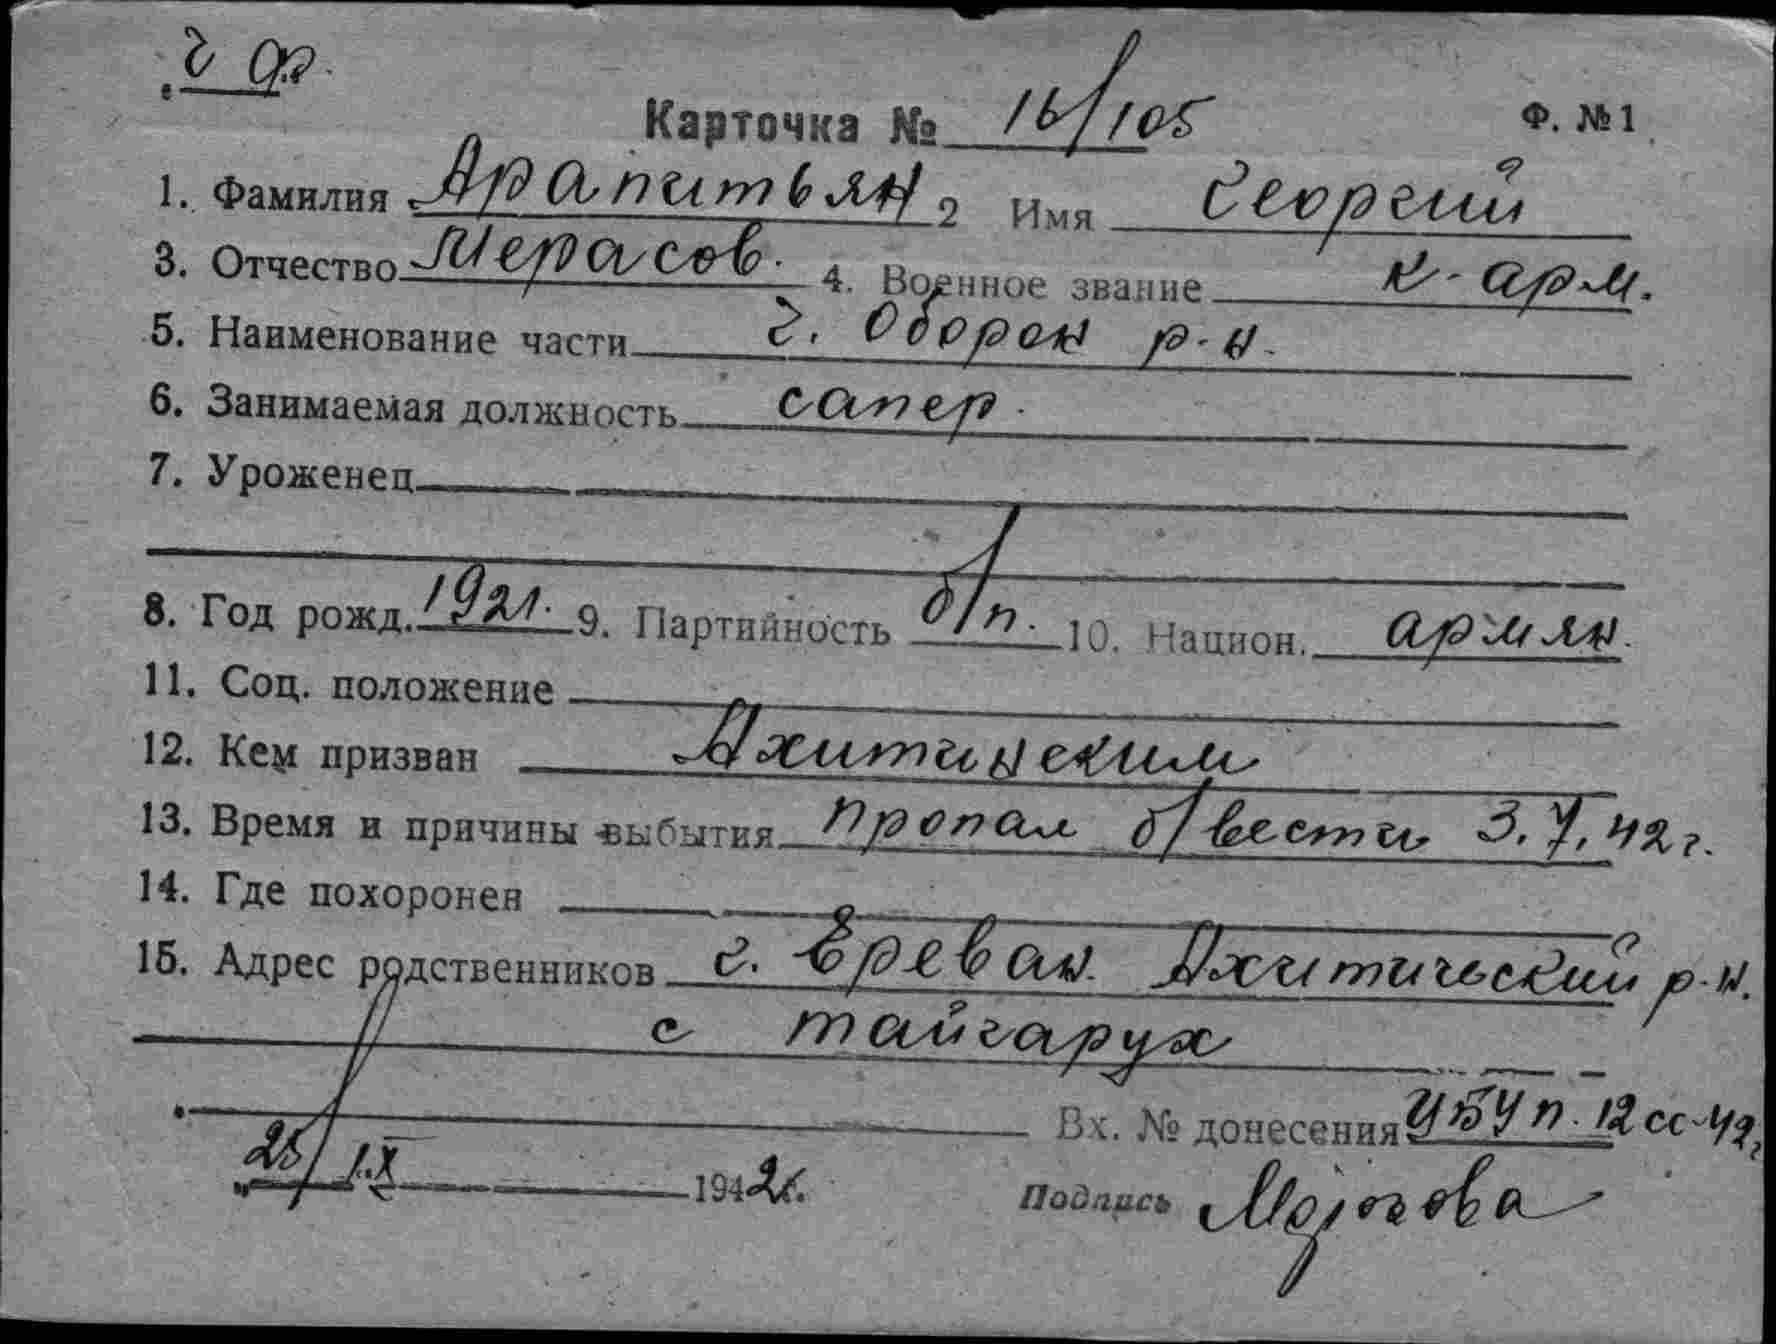 Карточка № 16/105 Ф. №1
1. Фамилия Арапитьян 2 Имя Георгий
3. Отчество Мерасов. 4. Военное звание к-арм.
5. Наименование части 2. Оборон р-н.
6. Занимаемая должность сапер.
7. Уроженец
8. Год рожд. 1921. 9. Партийность б/п. 10. Национ. армян.
11. Соц. положение
12. Кем призван Ахитинским
13. Время и причины выбытия пропал б/вести 3.7.42г.
14. Где похоронен
15. Адрес родственников г. Ереван. Ахитический р-н.
с тайгарух
Вх. № донесения УБУп. 12сс-42г
25/IX 1942г. Подпись